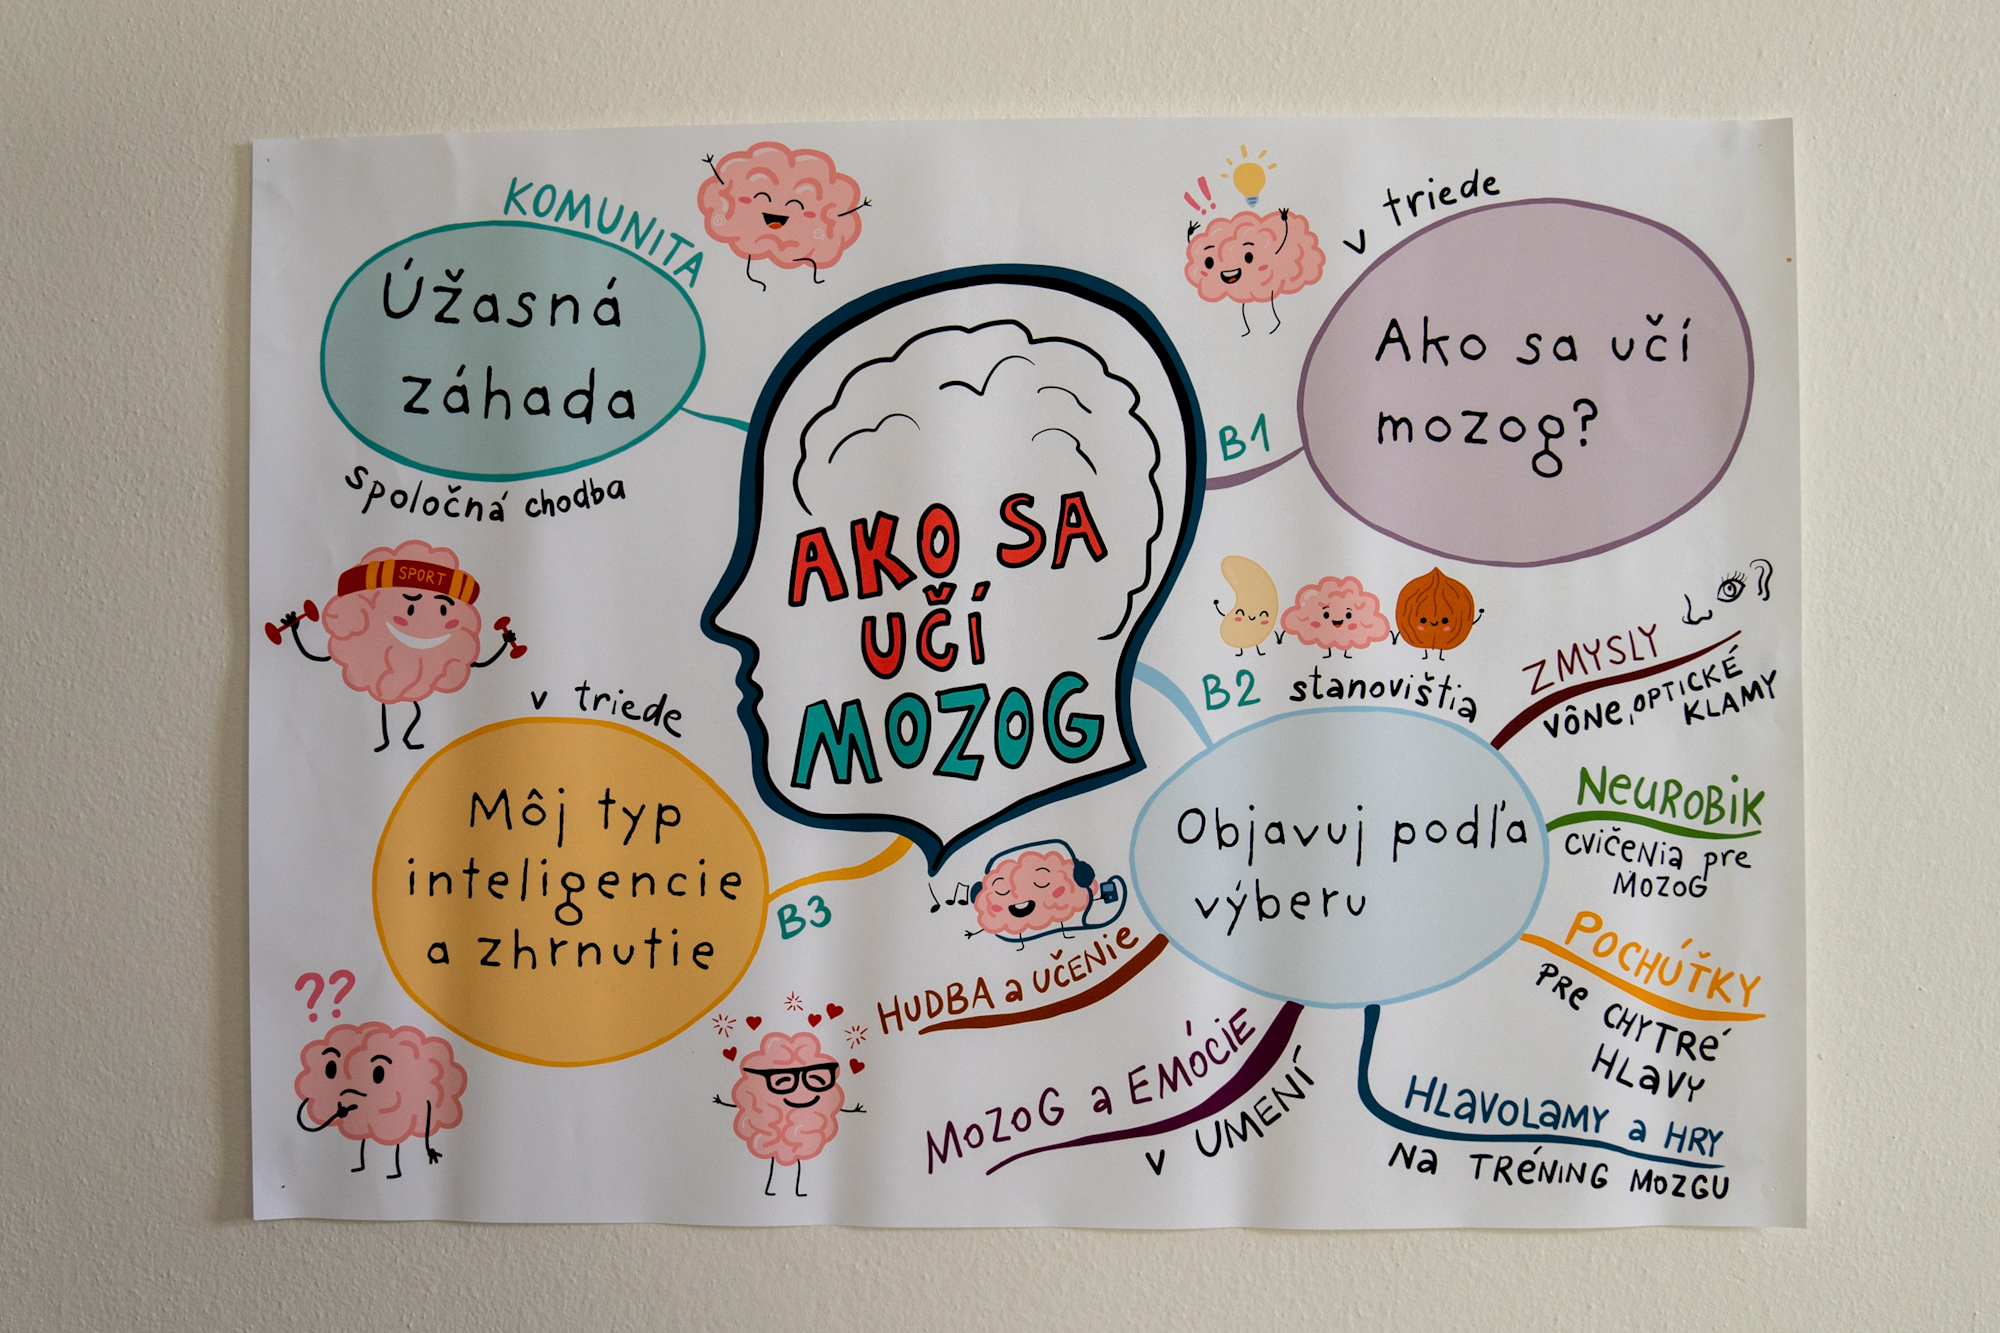 AKO SA
UČÍ
MOZOG
KOMUNITA
Úžasná
záhada
spoločná chodba
B1
v triede
Ako sa učí
mozog?
B2 stanovištia
Objavuj podľa
výberu
ZMYSLY
VÔNE, OPTICKÉ
KLAMY
NEUROBIK
CVIČENIA pre
MOZOG
POCHÚŤKY
PRE CHYTRÉ
HLAVY
HLAVOLAMY a HRY
NA TRÉNING MOZGU
MOZOG a EMÓCIE
V UMENÍ
HUDBA a UČENIE
B3
v triede
Môj typ
inteligencie
a zhrnutie
SPORT
!!
??